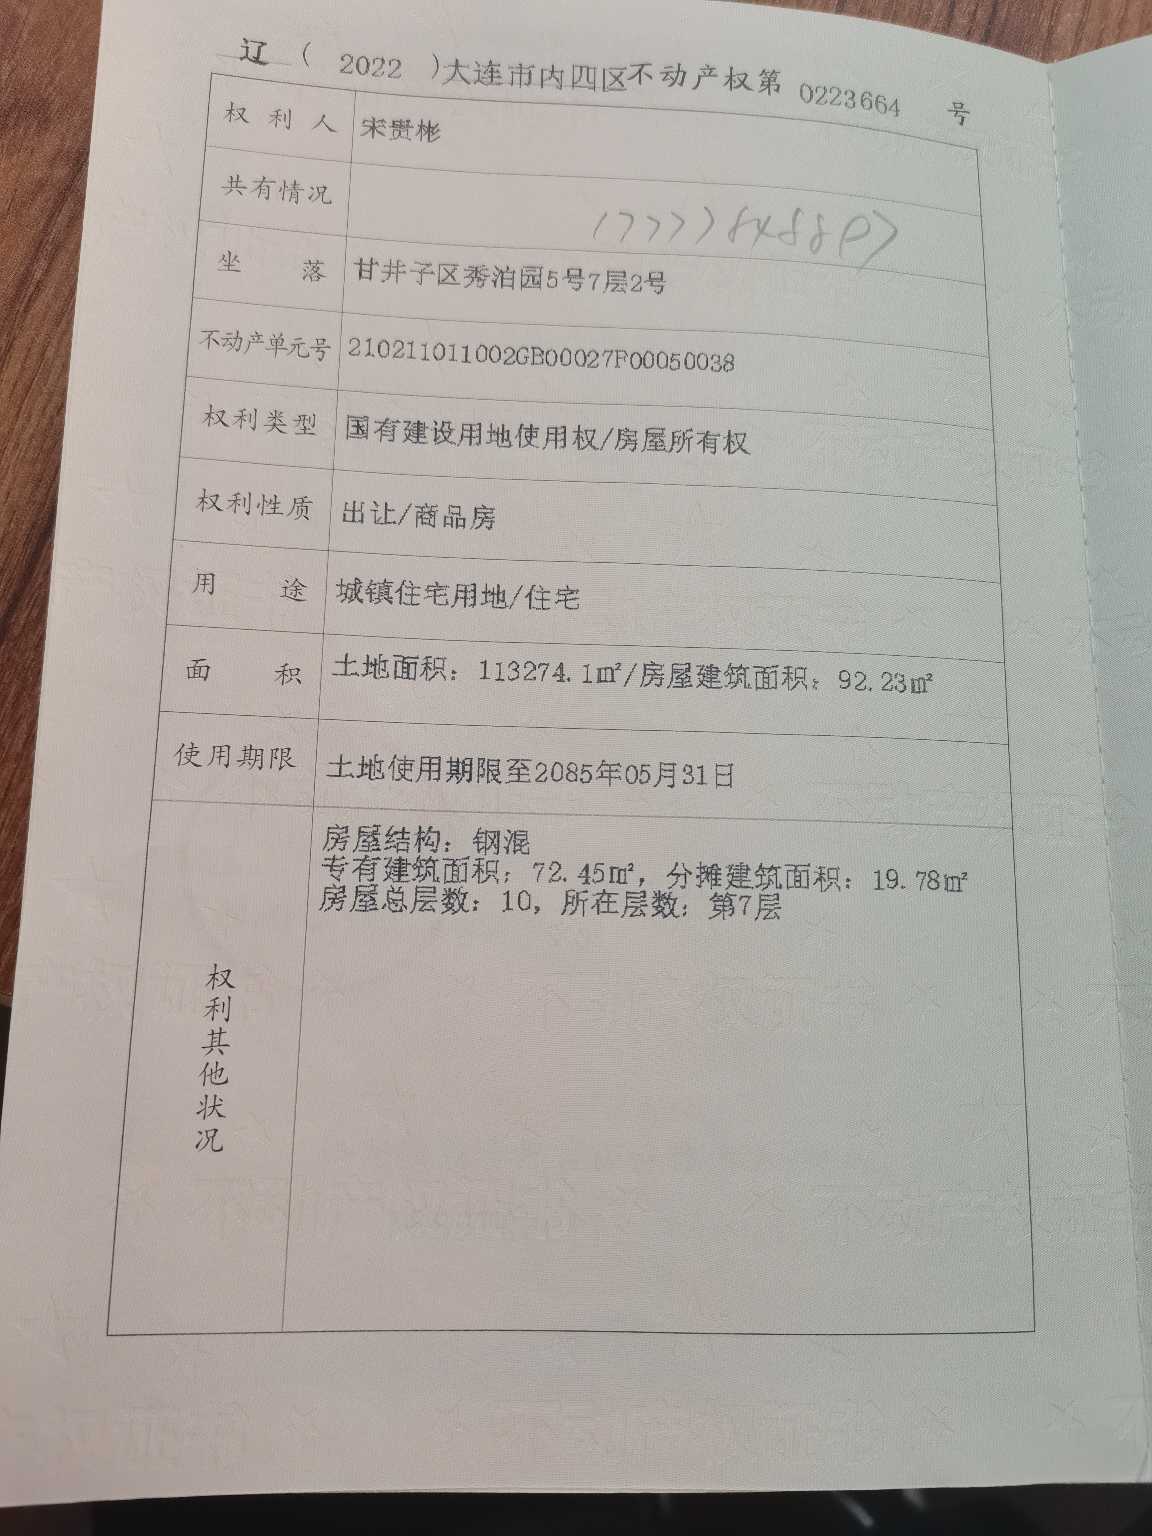 辽（ 2022 ）大连市内四区不动产权第 0223664 号
权利人 宋贵彬
共有情况
坐落 甘井子区秀泊园5号7层2号
不动产单元号 210211011002GB00027F00050038
权利类型 国有建设用地使用权/房屋所有权
权利性质 出让/商品房
用途 城镇住宅用地/住宅
面积 土地面积：113274.1㎡/房屋建筑面积：92.23㎡
使用期限 土地使用期限至2085年05月31日
权利其他状况
房屋结构：钢混
专有建筑面积：72.45㎡，分摊建筑面积：19.78㎡
房屋总层数：10，所在层数：第7层